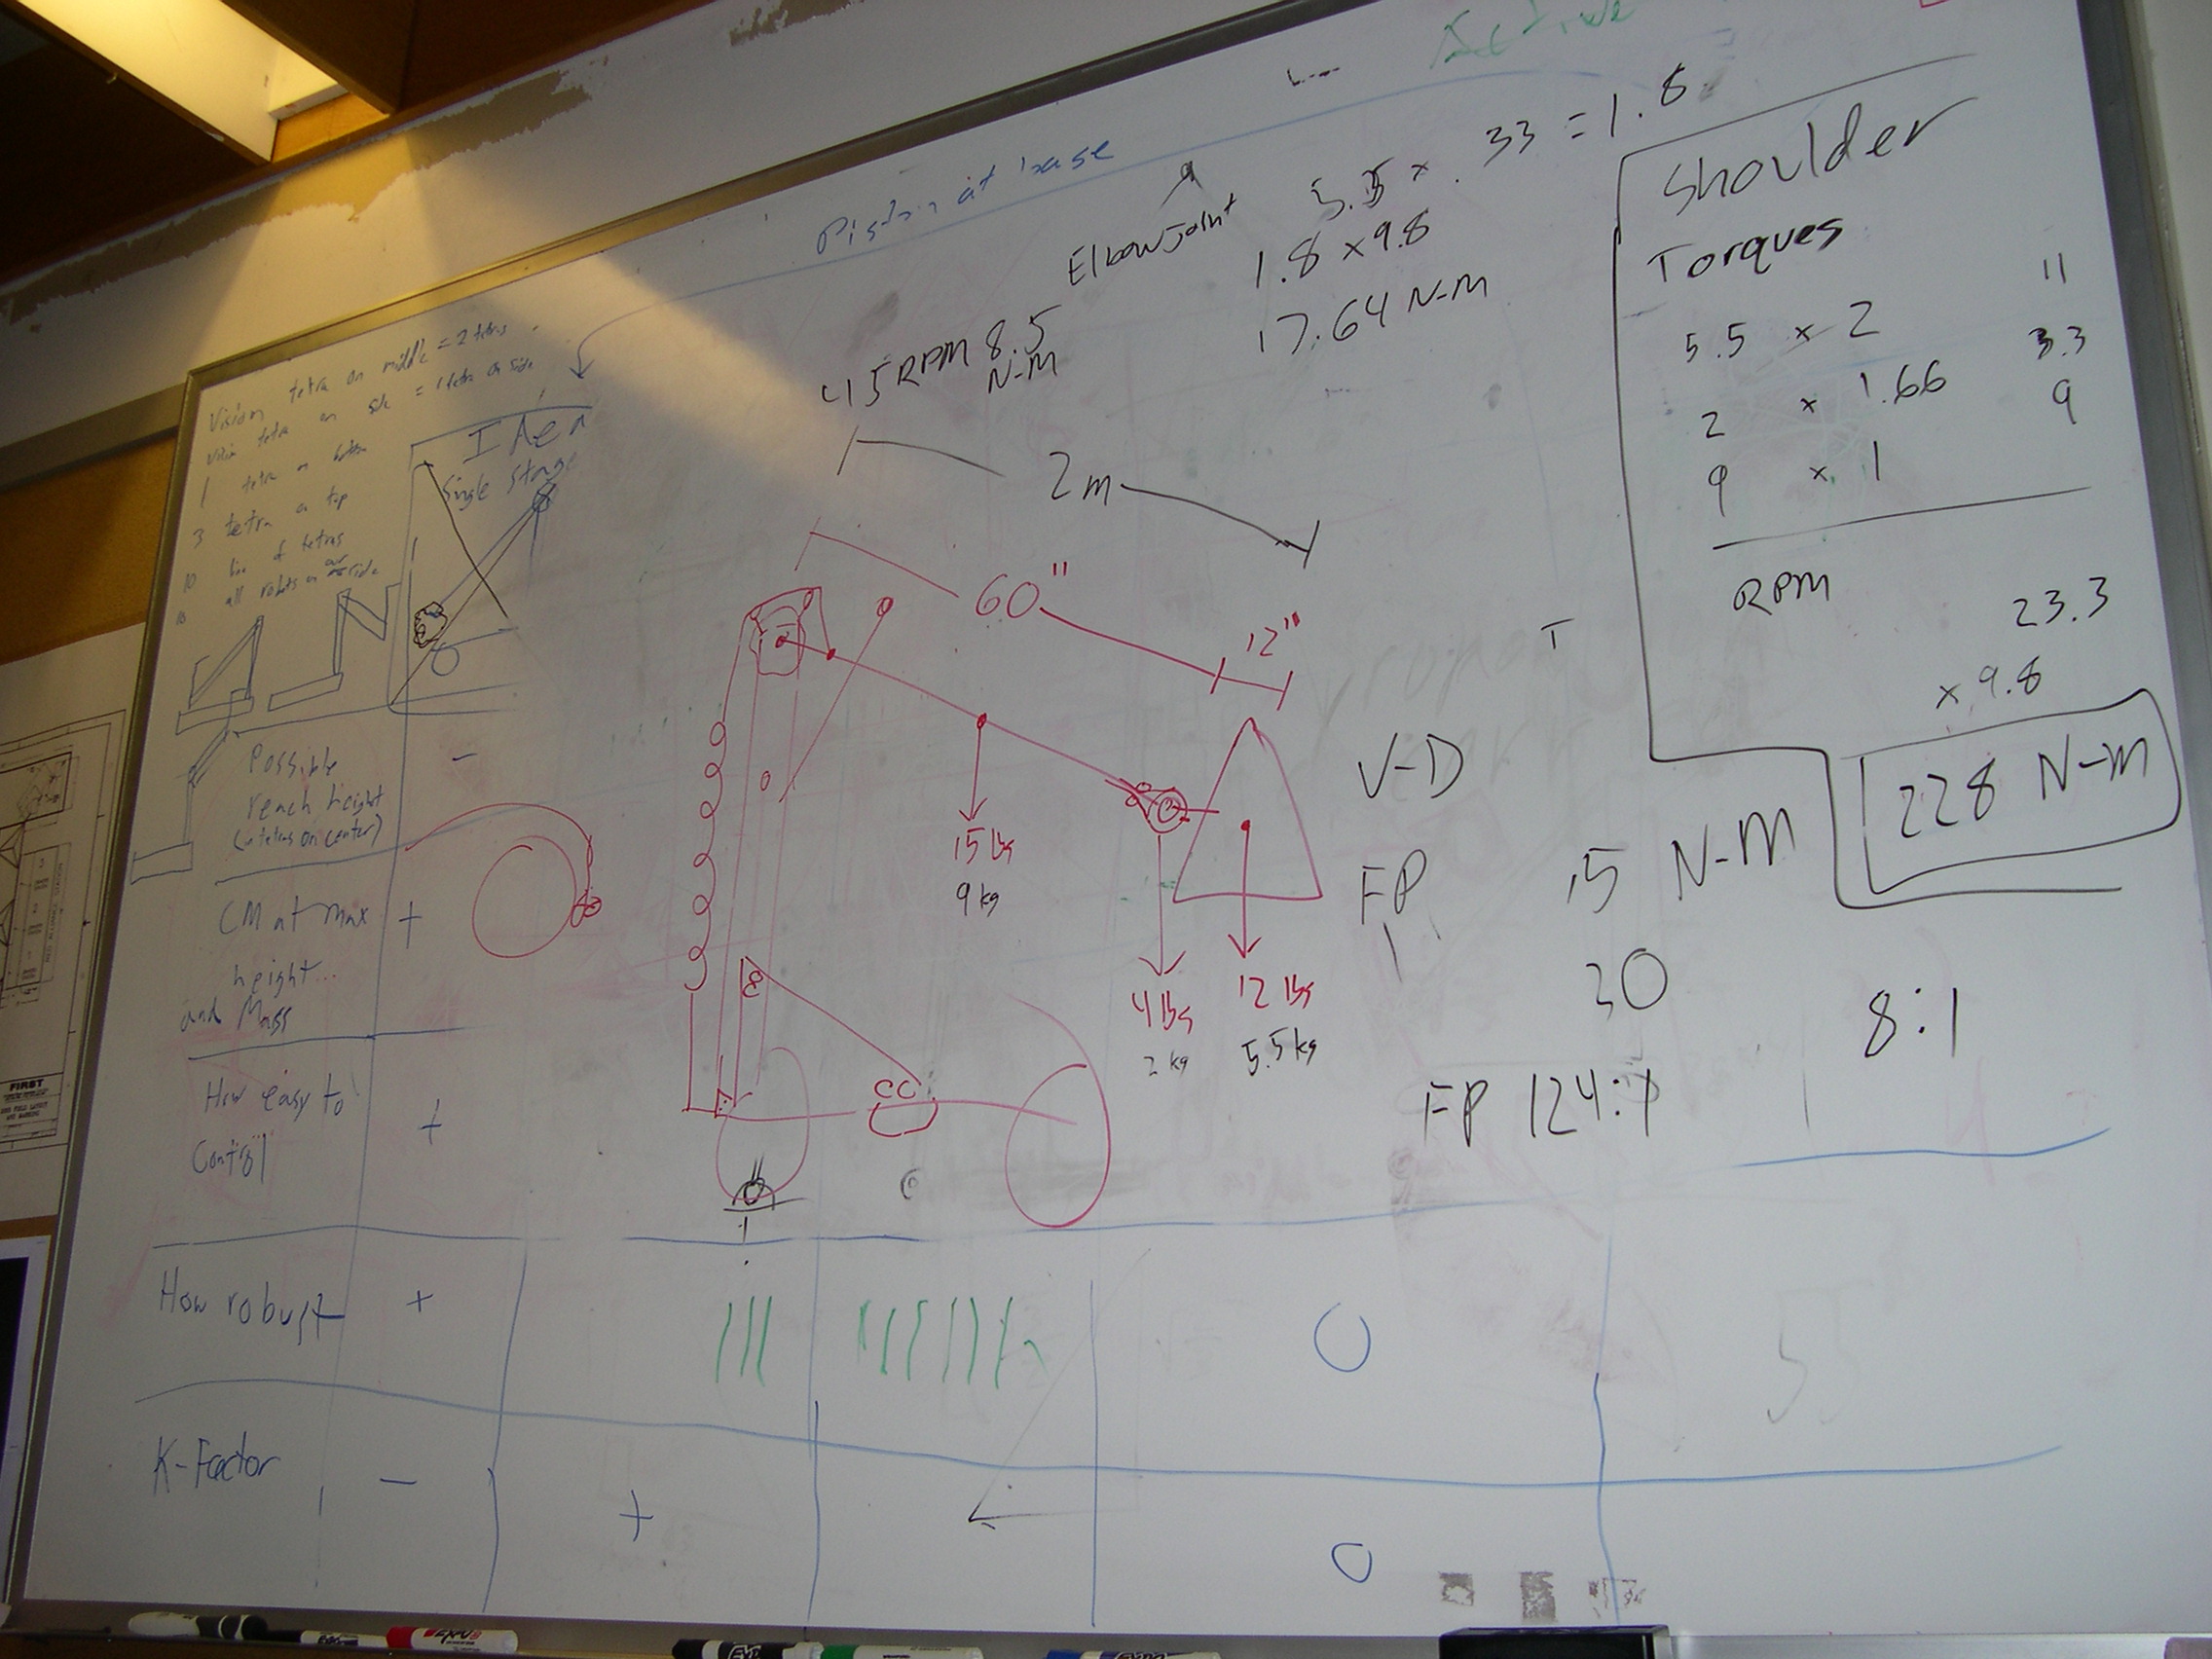 Active
Piston at base
Elbow Joint
5.5 x .33 = 1.8
1.8 x 9.8
17.64 N-M
45 RPM 8.5
N-M
Shoulder
Torques
5.5 x 2 11
2 x 1.66 3.3
9 x 1 9
RPM
23.3
x 9.8
228 N-M
Vision tetra on middle = 2 tetras
Vision tetra on side = 1 tetra on side
1 tetra on bottom
3 tetra on top
10 line of tetras
all robots on side
Idea
Single Stage
2m
60"
12"
15 lbs
9 kg
4 lbs
2 kg
12 lbs
5.5 kg
T
V-D
FP
.5 N-M
30
8:1
FP 124:1
Possible
reach height
(w tetras on center)
-
CM at max
height...
and Mass
+
How easy to
Control
+
How robust
+
O
K-Factor
-
+
O
FIRST
EXPO